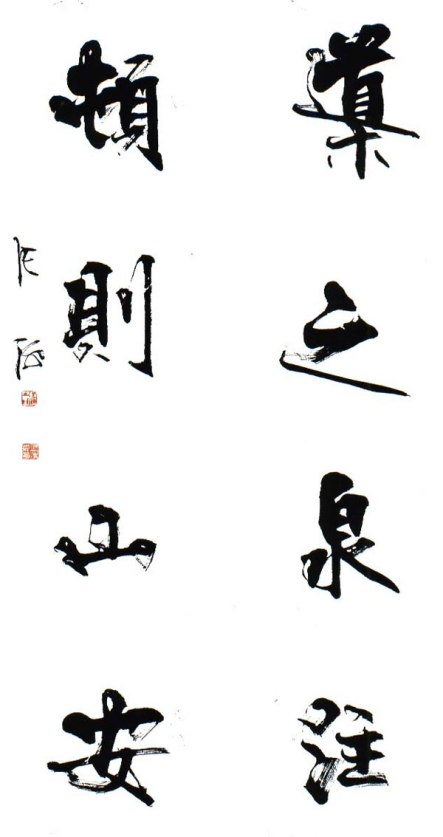 導之泉注
頓則山安